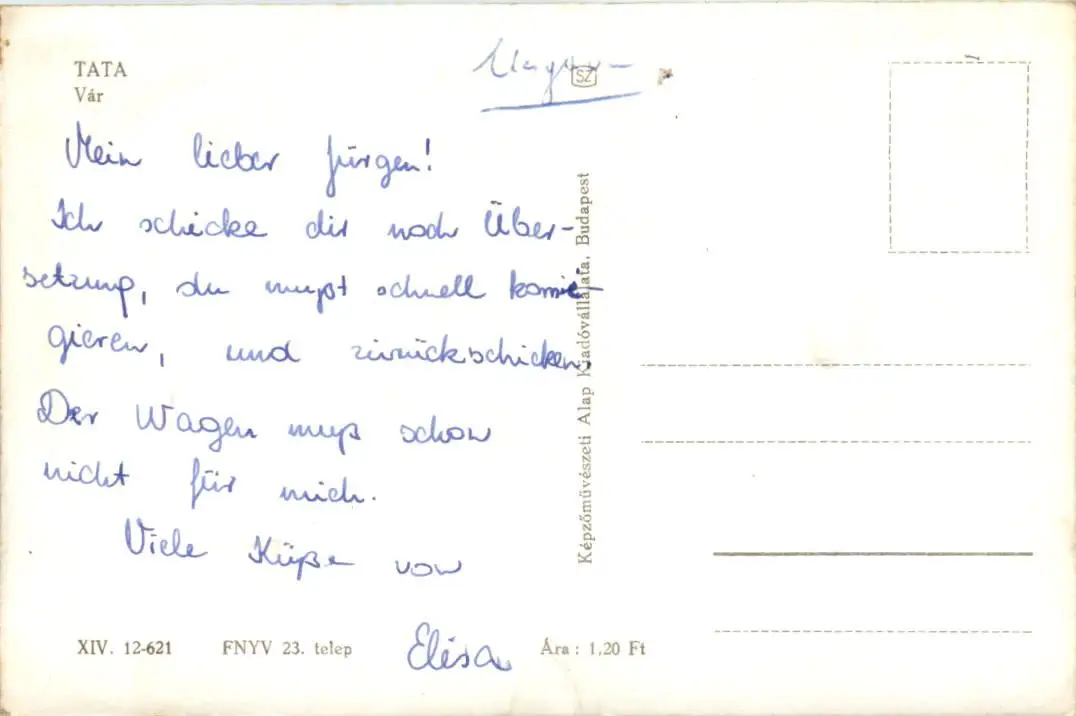 TATA
Vár
SZ
Mein lieber Jürgen!
Ich schicke dir noch Über-
setzung, du mußt schnell korri-
gieren, und zurückschicken.
Der Wagen muß schon
nicht für mich.
Viele Küße von
Elisa
Képzőművészeti Alap Kiadóvállalata, Budapest
XIV. 12-621 FNYV 23. telep Ára: 1,20 Ft